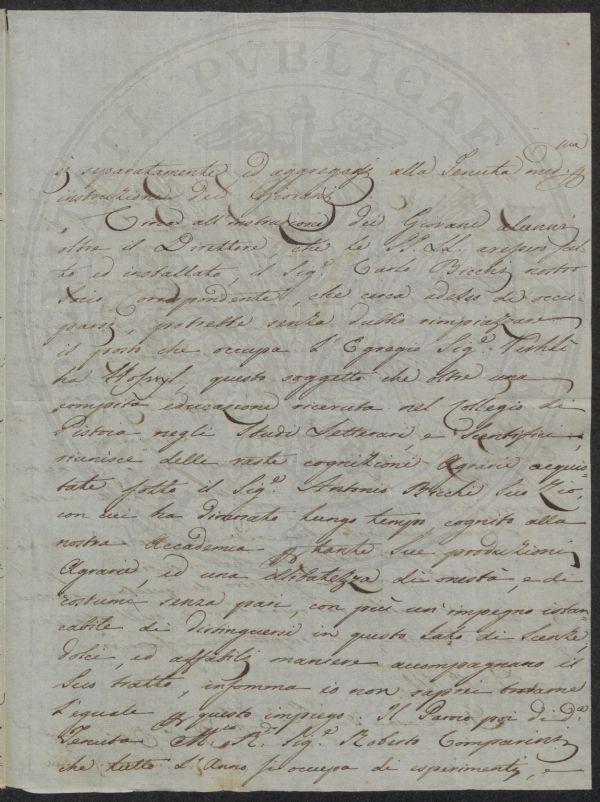 si separatamente ed aggregarsi alla Tenuta med.ma
instruzione dei Giovani
Circa all'instruzione dei Giovani alunni
oltre il Direttore, che le SS. LL. avessero
to ed installato, il Sig.r Carlo Bicchi nostro
Socio Corrispondente, che cerca adesso di occu-
parsi, potrebbe senza dubbio rimpiazzare
il posto che occupa l'Egregio Sig.r
ha Hofwyl, questo soggetto che oltre una
compita educazione ricevuta nel Collegio di
Pistoia negli Studi Letterari, e Scentifici,
riunisce delle vaste cognizioni Agrarie acquis-
tate sotto il Sig.r Antonio Bicchi Suo Zio,
con cui ha dimorato lungo tempo, cognito alla
nostra Accademia p tante Sue produzioni
Agrarie, ed una illibatezza di onestà, e di
costumi senza pari, con più un'impegno instan-
cabile di distinguersi in questo lato di Scenze,
dolci, ed affabili maniere accompagnano il
Suo tratto, insomma io non saprei trovarne
l'eguale p questo impiego. Il Paroco poi di d.a
Tenuta M.to R.do Sig.r Roberto Comparini
che tutto l'Anno si occupa di esperimenti, e